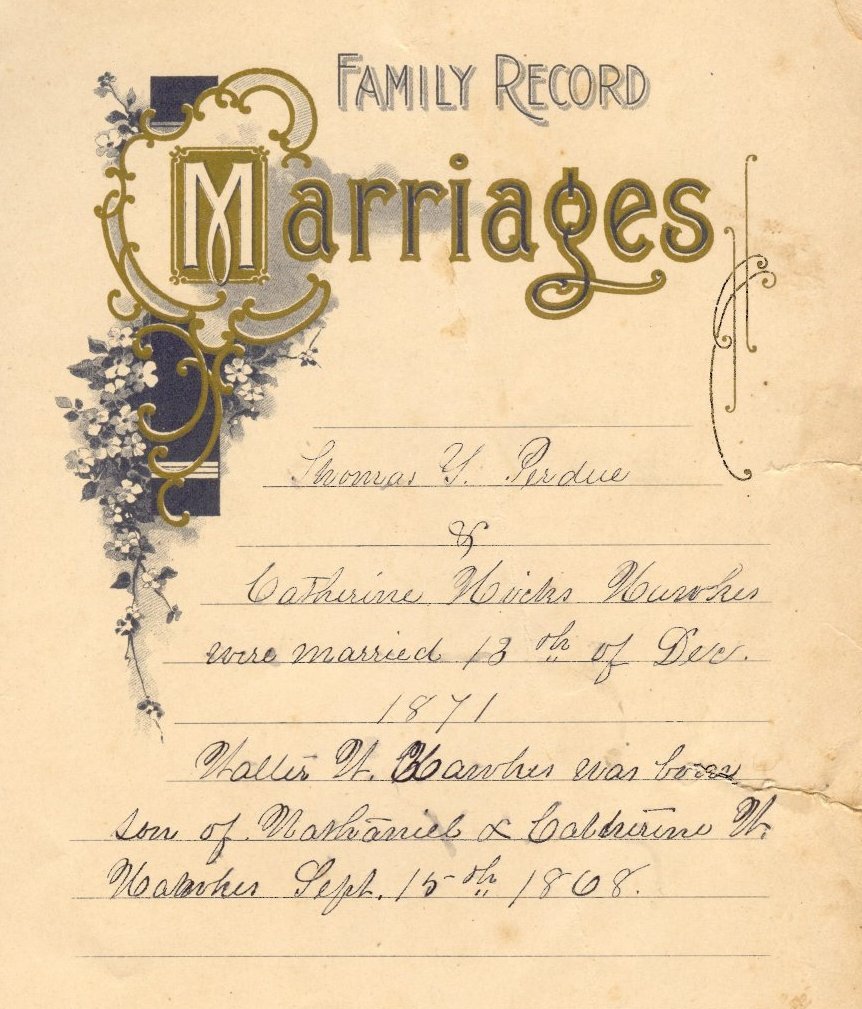 FAMILY RECORD
Marriages
Thomas Y. Perdue
&
Catherine Hicks Hawkes
were married 13th of Dec.
1871
Walter H. Hawkes was born
son of Nathaniel & Catherine H.
Hawkes Sept. 15th 1868.